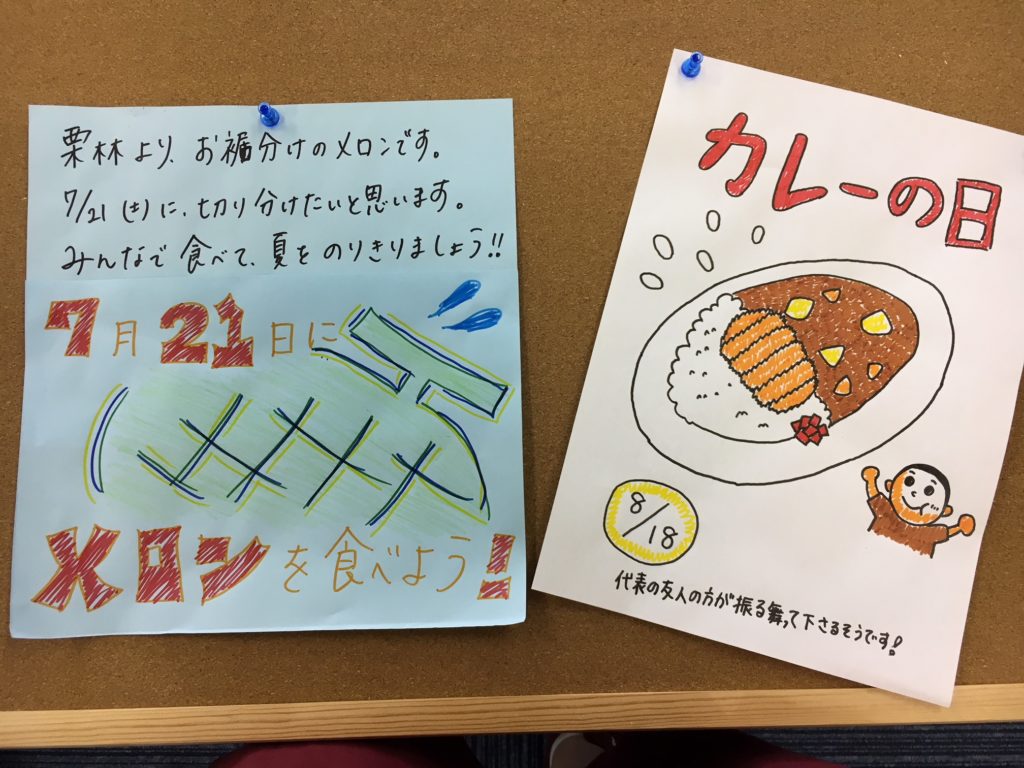 栗林より、お裾分けのメロンです。
7/21（木）に、切り分けたいと思います。
みんなで食べて、夏をのりきりましょう!!
7月21日に
メロンを食べよう!
カレーの日
8/18
代表の友人の方が振る舞って下さるそうです!